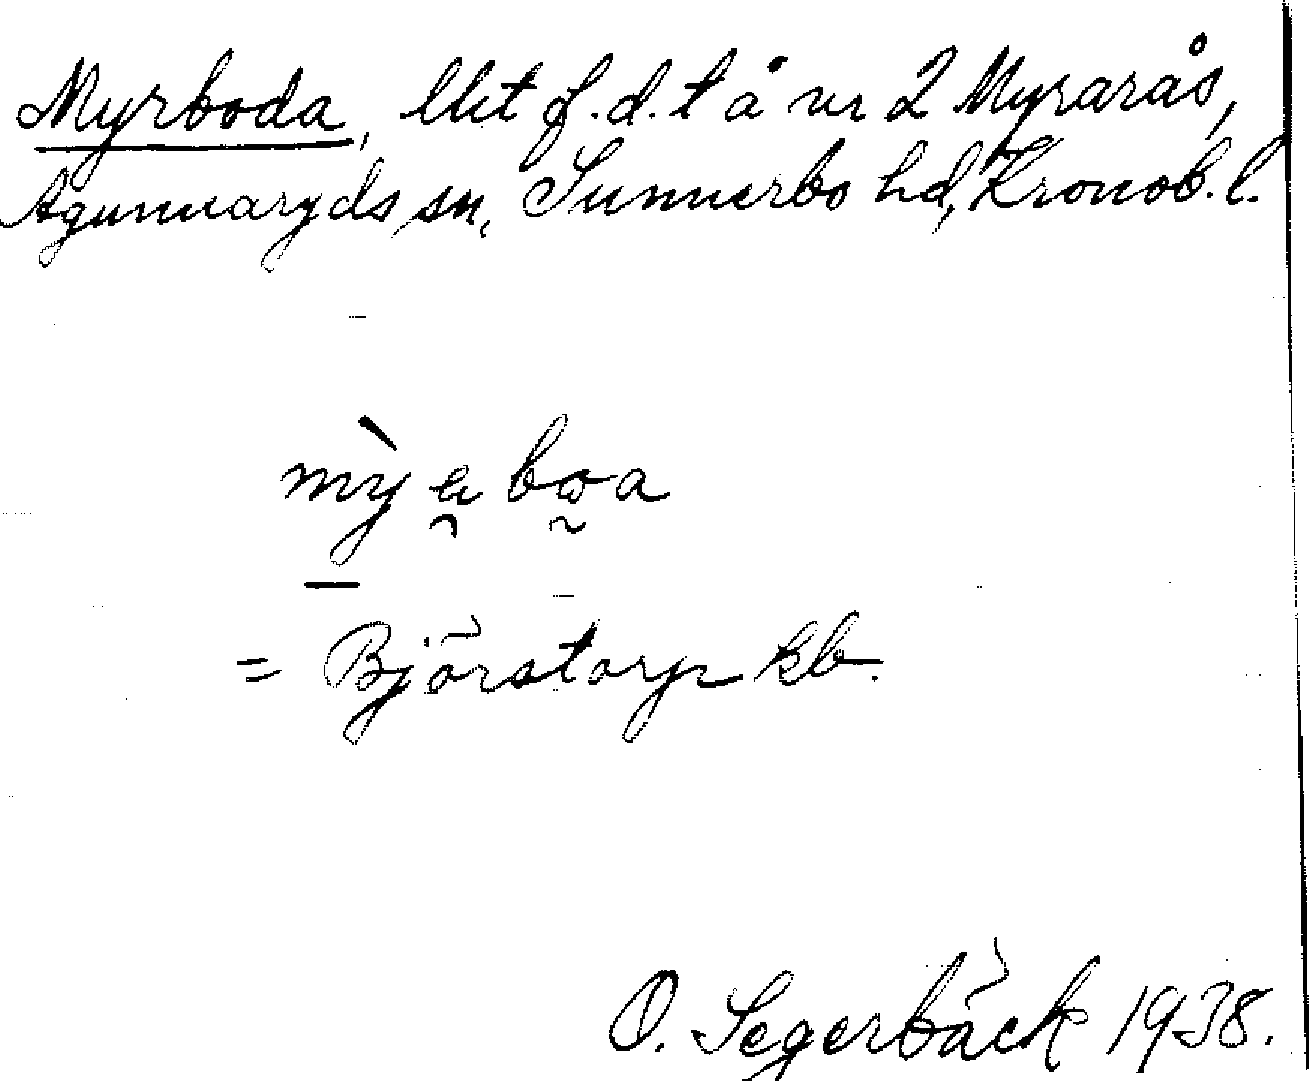 Myrboda, lht f.d. t å nr 2 Myrarås,
Agunnaryds sn, Sunnerbo hd, Kronob. l.
= Björstorp kb.
O. Segerbäck 1938.